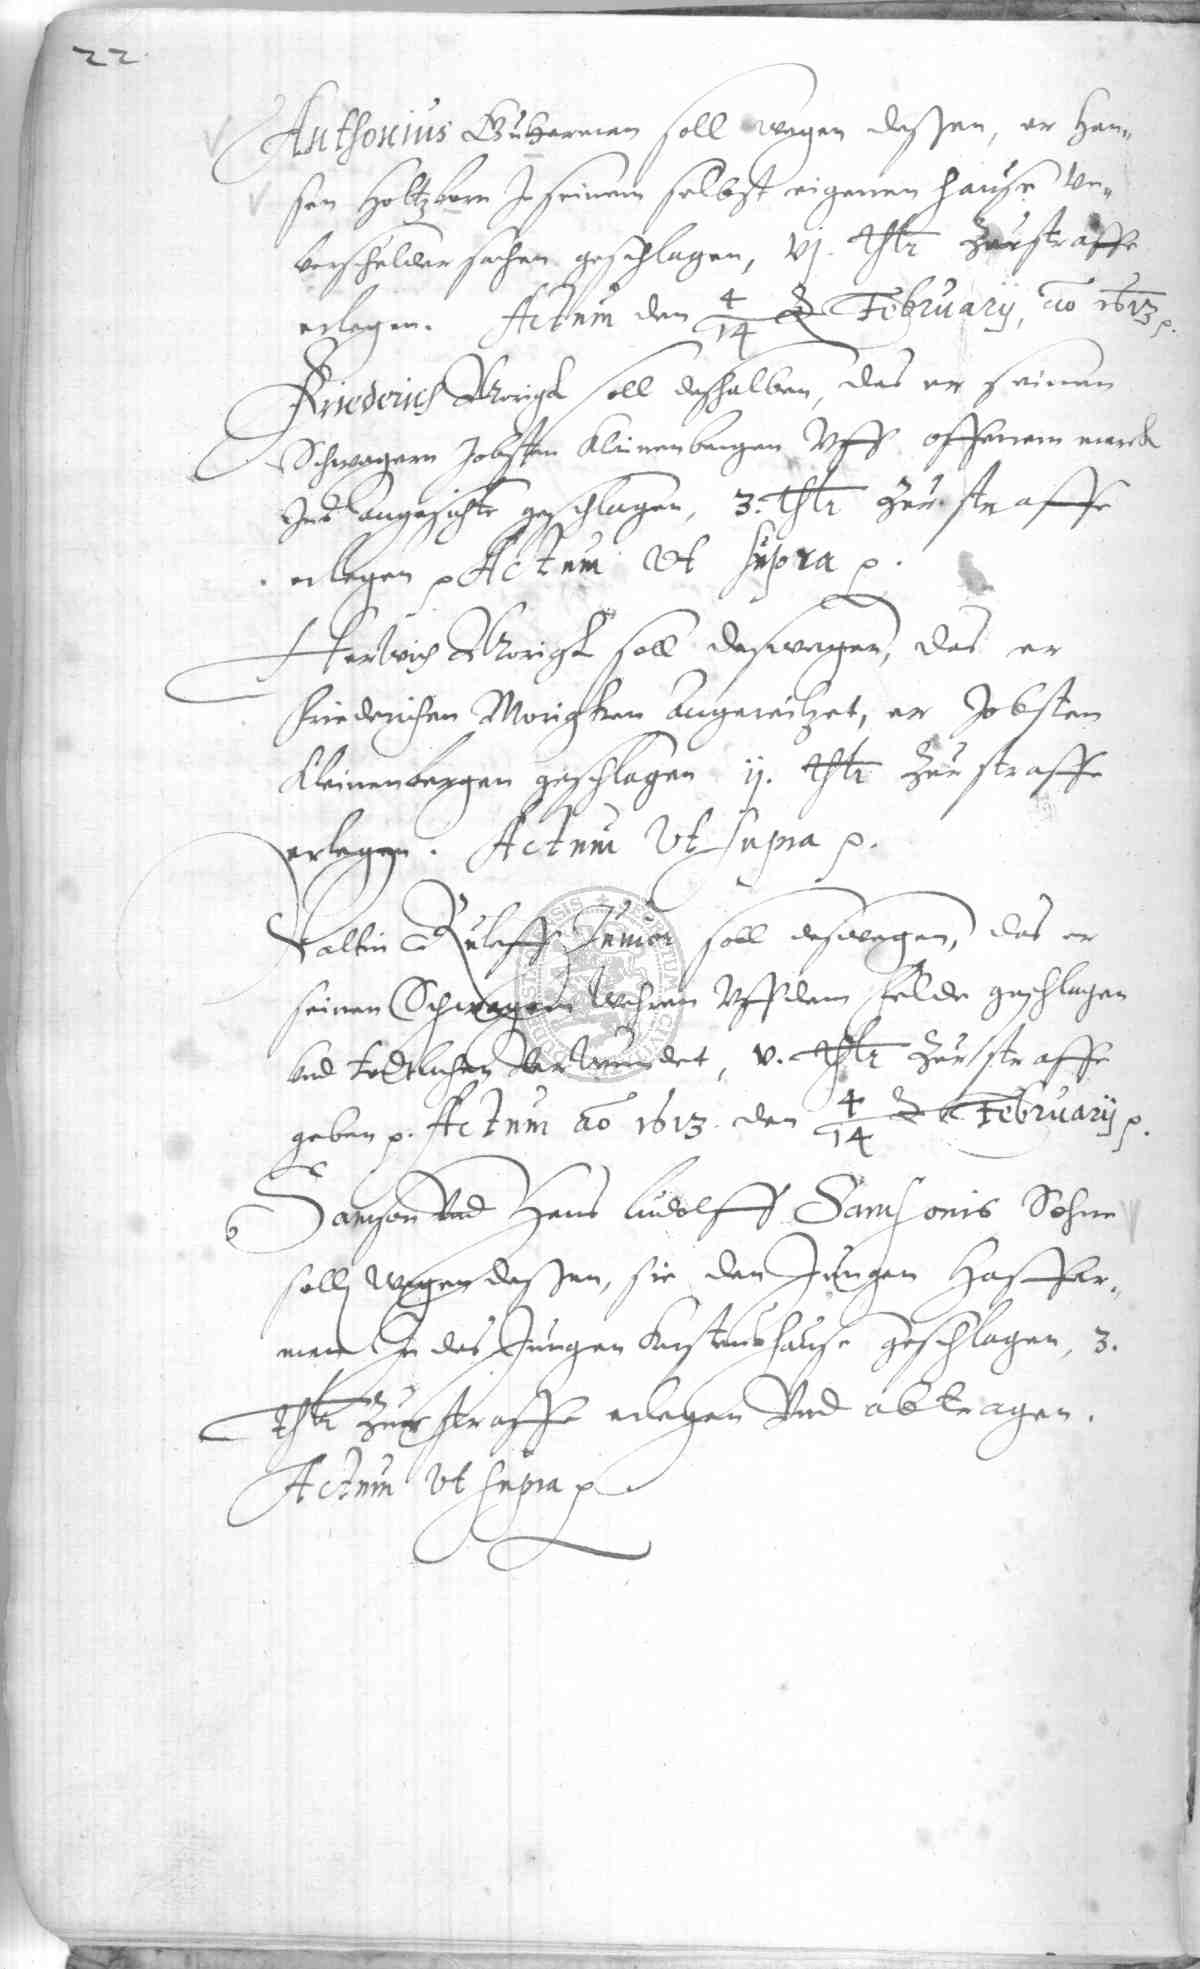 22.
Anthonius Guterman soll wegen deßen, er Han„
sen Holtzborn In seinem selbst eigenen hause Un„
verschulder sachen geschlagen, vj. thlr Zur straffe
erlegen. Actum den 4/14 Februarij, ao 1613 p.
Friederich Morigk soll deshalben, das er seinen
Schwagern Jobsten Kleinenbergen Uff offenem marck
Ins angesichte geschlagen, 3. thlr Zur straffe
erlegen p Actum Ut supra p.
Herwich Morigk soll deswegen, das er
friederichen Morigken angereitzet, er Jobsten
Kleinenbergen geschlagen ij. thlr Zur straffe
erlegen. Actum Ut supra p.
Valtin Ruleff Junior soll deswegen, das er
seinen Schwagern Uffdem felde geschlagen
Und tödtlichen Verwundet, v. thlr Zur straffe
geben p. Actum ao 1613. den 4/14 February p.
Samson Und Hans Ludolff Samsonis Sohne
soll wegen deßen, sie den Jungen
In des Jungen hause geschlagen, 3.
thlr Zur straffe erlegen Und abtragen.
Actum Ut supra p